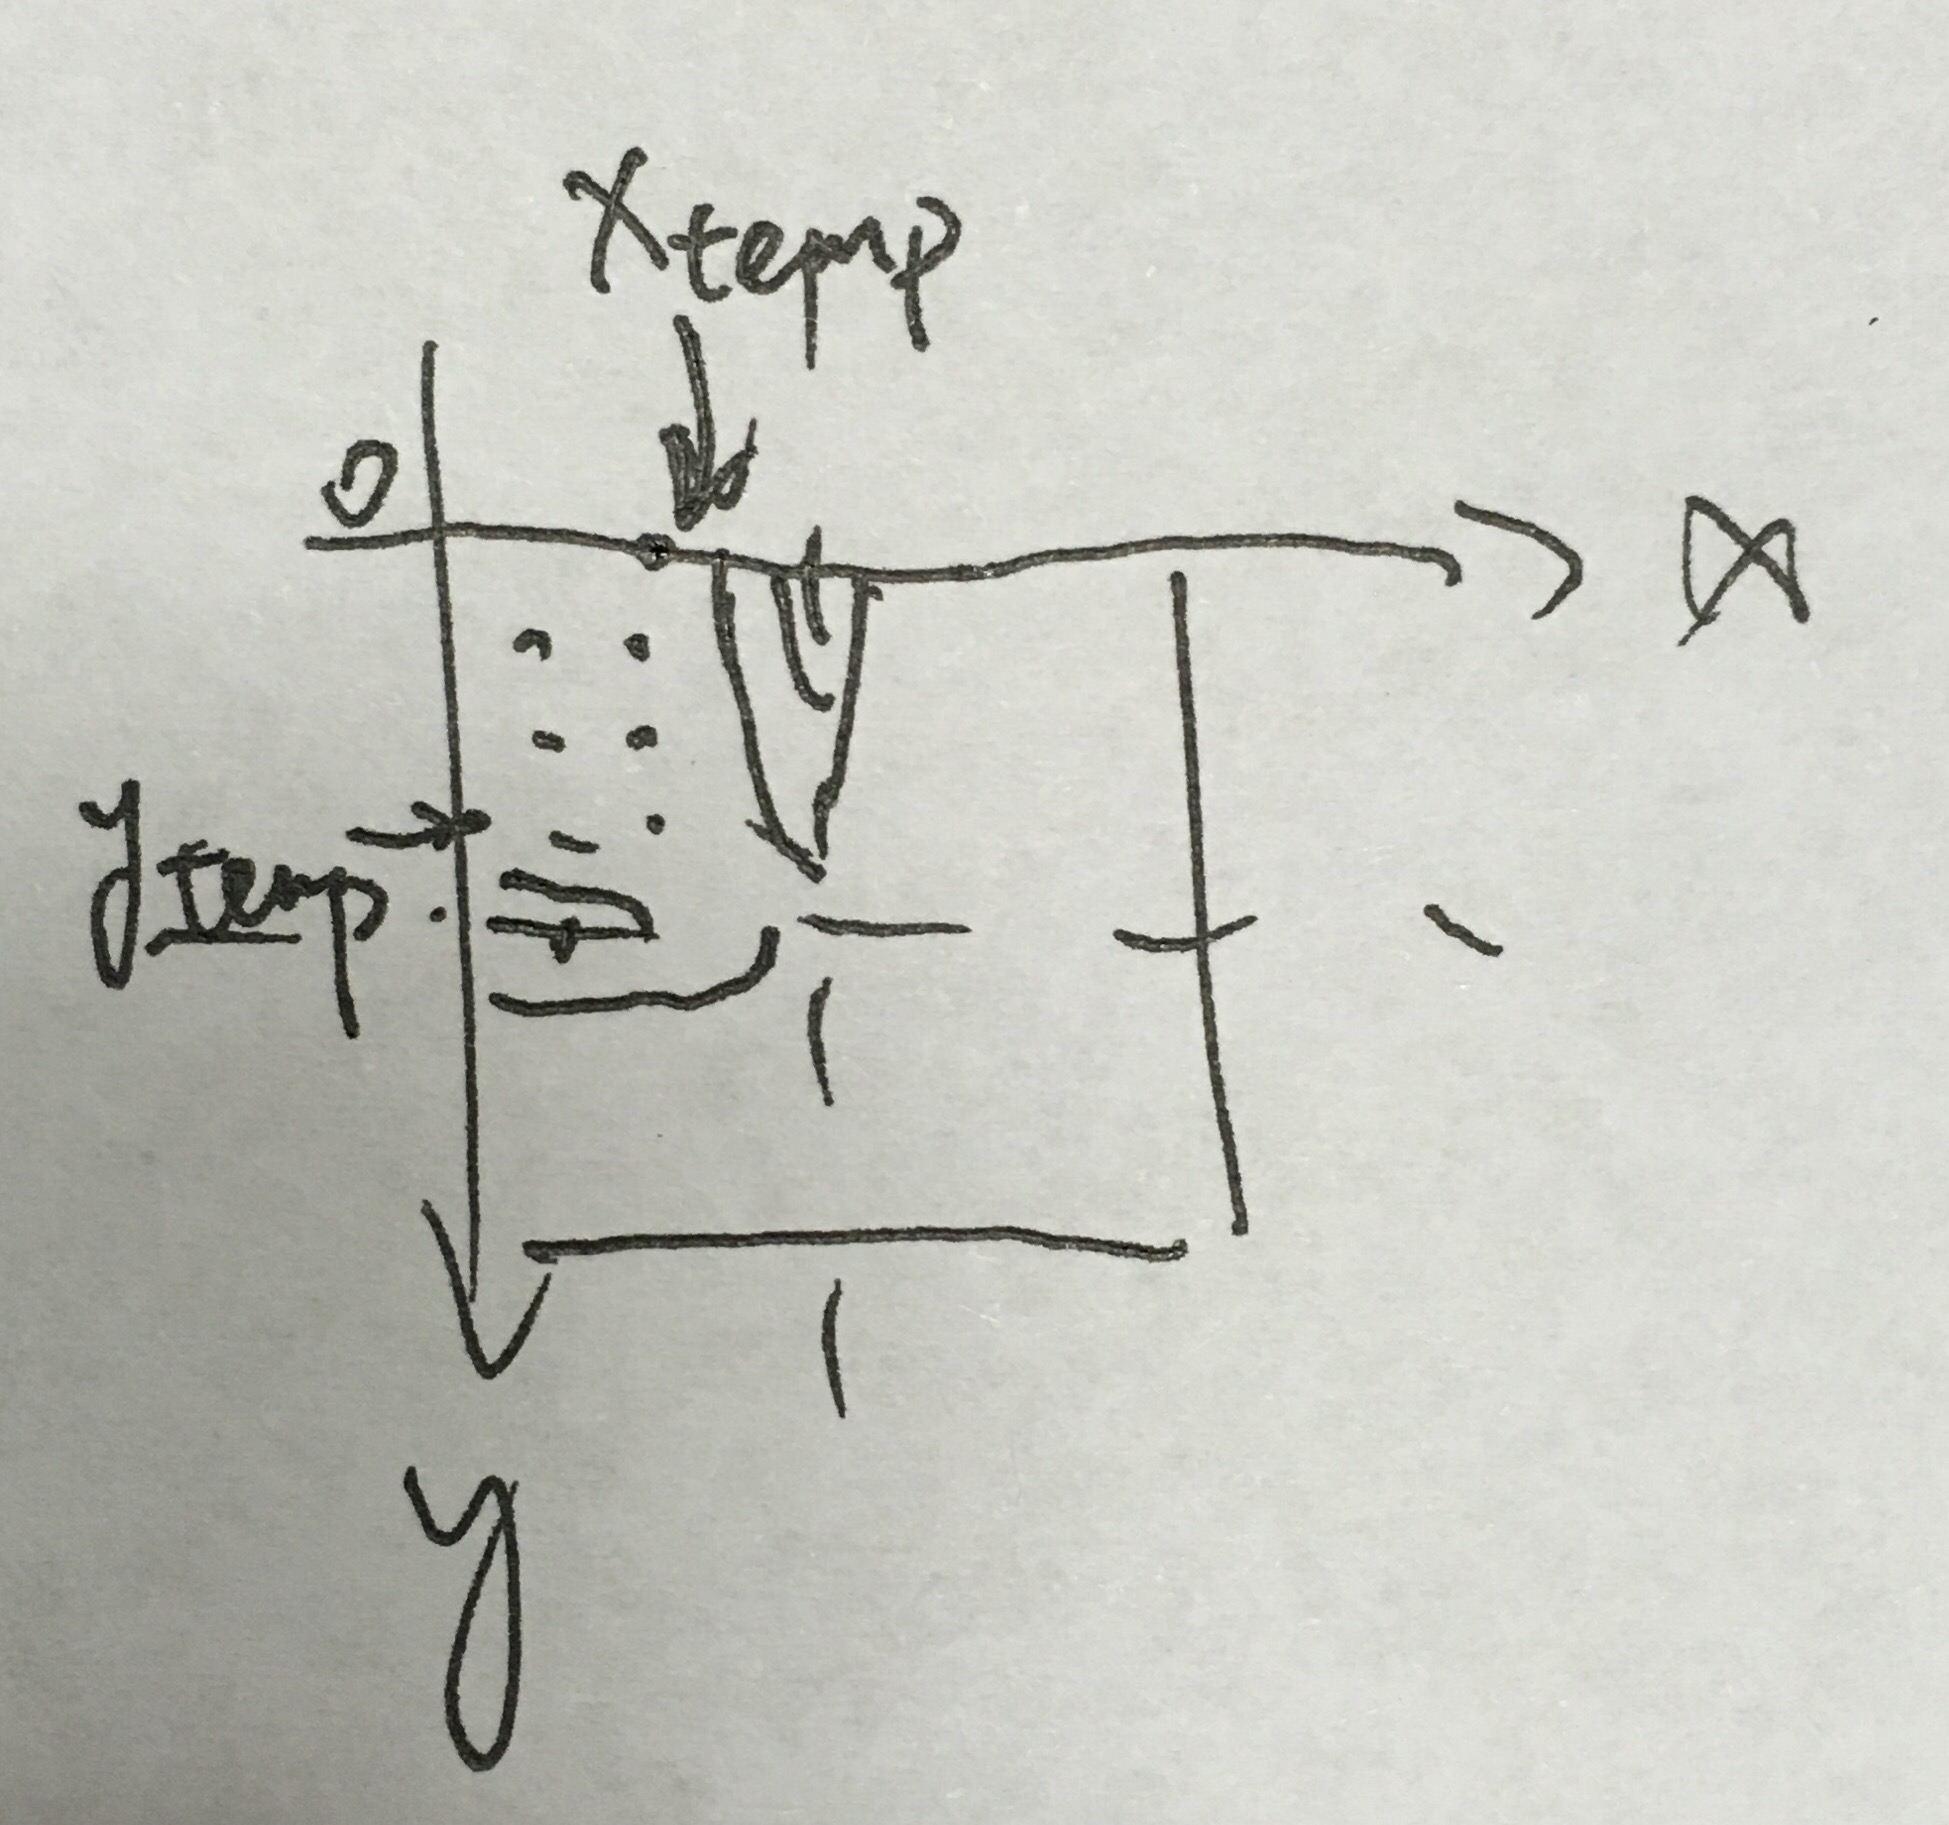 Xtemp
0
x
ytemp
y